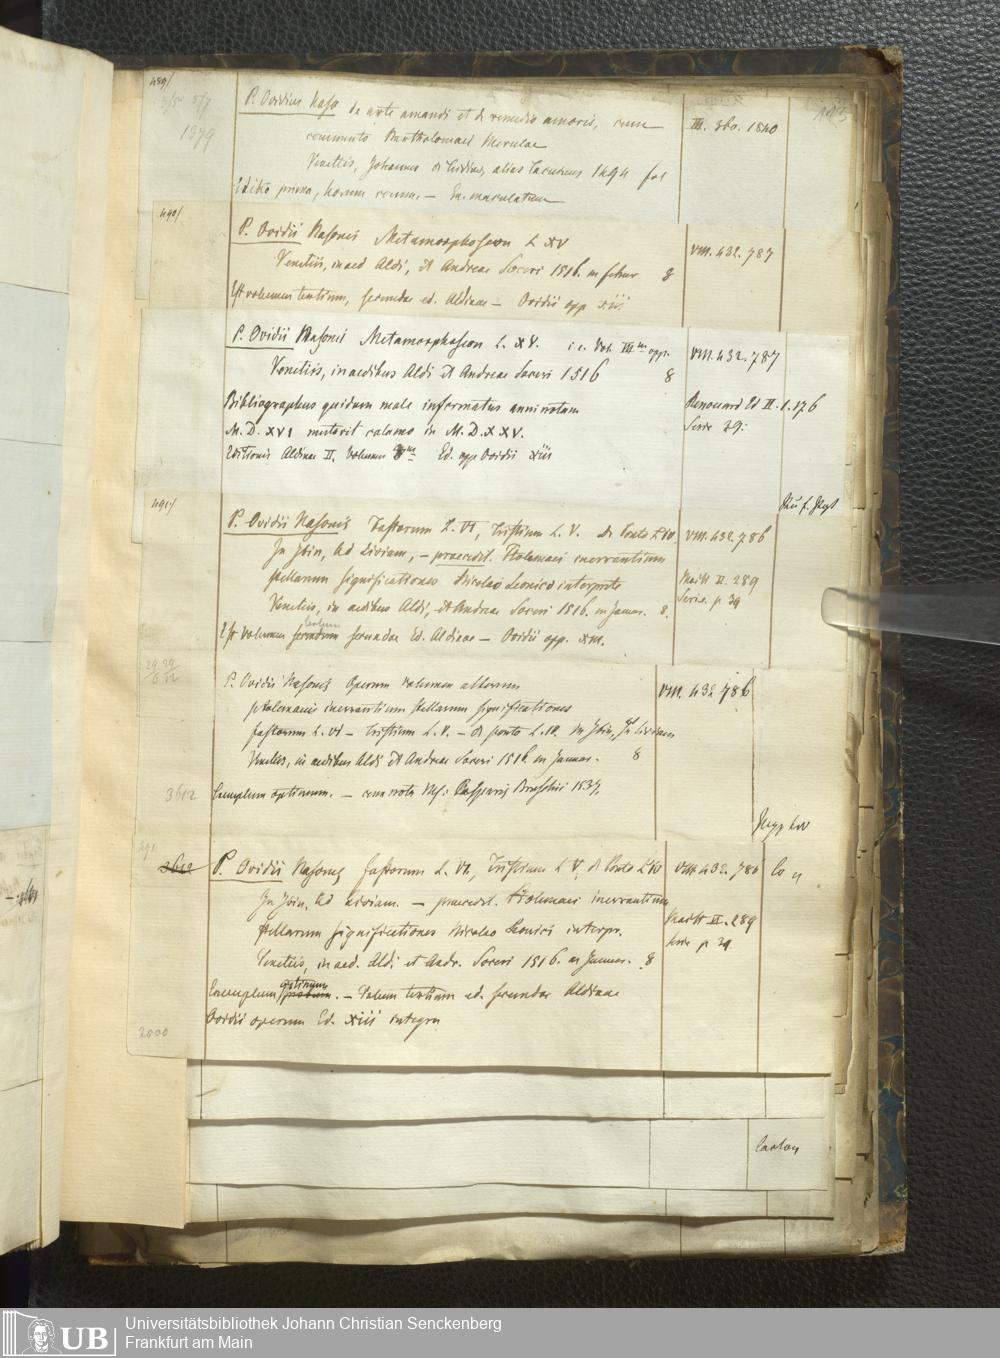 489/
1979
113
P. Ovidius Naso de arte amandi et de remedio amoris, cum
commento Bartholomaei Merulae
III. 360. 1840
Venetiis, Johannes de alias Tacuinus 1494 fol
Editio prima, horum comm. — Ex. maculatum
490/
P. Ovidii Nasonis Metamorphoseon L XV
VIII. 432. 787
Venetiis, in aed Aldi, et Andreae Soceri 1516. m febror 8
Est volumen tertium, secundae ed. Aldinae — Ovidii opp xiii.
P. Ovidii Nasonis Metamorphoseon L. XV. i. e. Vol. III m opp.
VIII. 432. 787
Venetiis, in aedibus Aldi et Andreae Soceri 1516 8
Bibliographus quidam male informatus anni notam
Renouard Ed II. 1. 176
M. D. XVI mutavit calamo in M. D. XXV.
Serie 39:
Editionis Aldinae II. Volumen Ed. opp Ovidii xiii
491/
P. Ovidii Nasonis Fastorum L. VI, Tristium L. V. de Ponto L IV.
VIII. 432. 786
In Ibin, ad Liviam, — praecedit. Ptolemaei inerrantium
stellarum significationes Nicolao Leonico interprete
Maitt II. 289
Serie p 39
Venetiis, in aedibus Aldi, et Andreae Soceri 1516. m Januar. 8.
Est volumen secundum tertium secundae Ed. Aldinae — Ovidii opp. XIII.
P. Ovidii Nasonis Operum volumen alterum
VIII. 432 786
ptolemaeis inerrantium stellarum significationes
fastorum L. VI — Tristium L. V. — de ponto L. IV. in Ibin, ad Liviam
Venetiis, in aedibus Aldi et Andreae Soceri 1516. m Januar. 8
3612
Exemplum optimum. — cum nota Ms: Casparis Bruschii 1537.
291
3612
P. Ovidii Nasonis fastorum L. VI, Tristium L V. de Ponto L IV
VIII. 432. 786
In Ibin, ad Liviam. — praecedit. Ptolemaei inerrantium
stellarum significationes Nicolao Leonici interpr.
Maitt II. 289
Serie p 39
Venetiis, in aed. Aldi et Andr. Soceri 1516. m Januar. 8
Exemplum probum optimum. — Volum tertium ed. secundae Aldinae
Ovidii operum Ed. xiii integra
2000
Carton
Universitätsbibliothek Johann Christian Senckenberg
Frankfurt am Main
UB